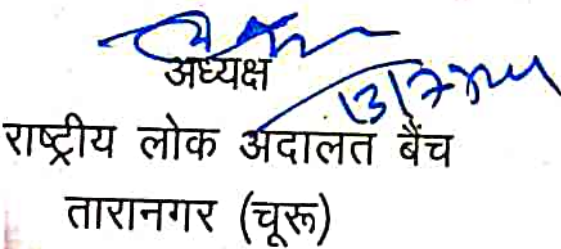 अध्यक्ष
राष्ट्रीय लोक अदालत बैंच
तारानगर (चूरू)